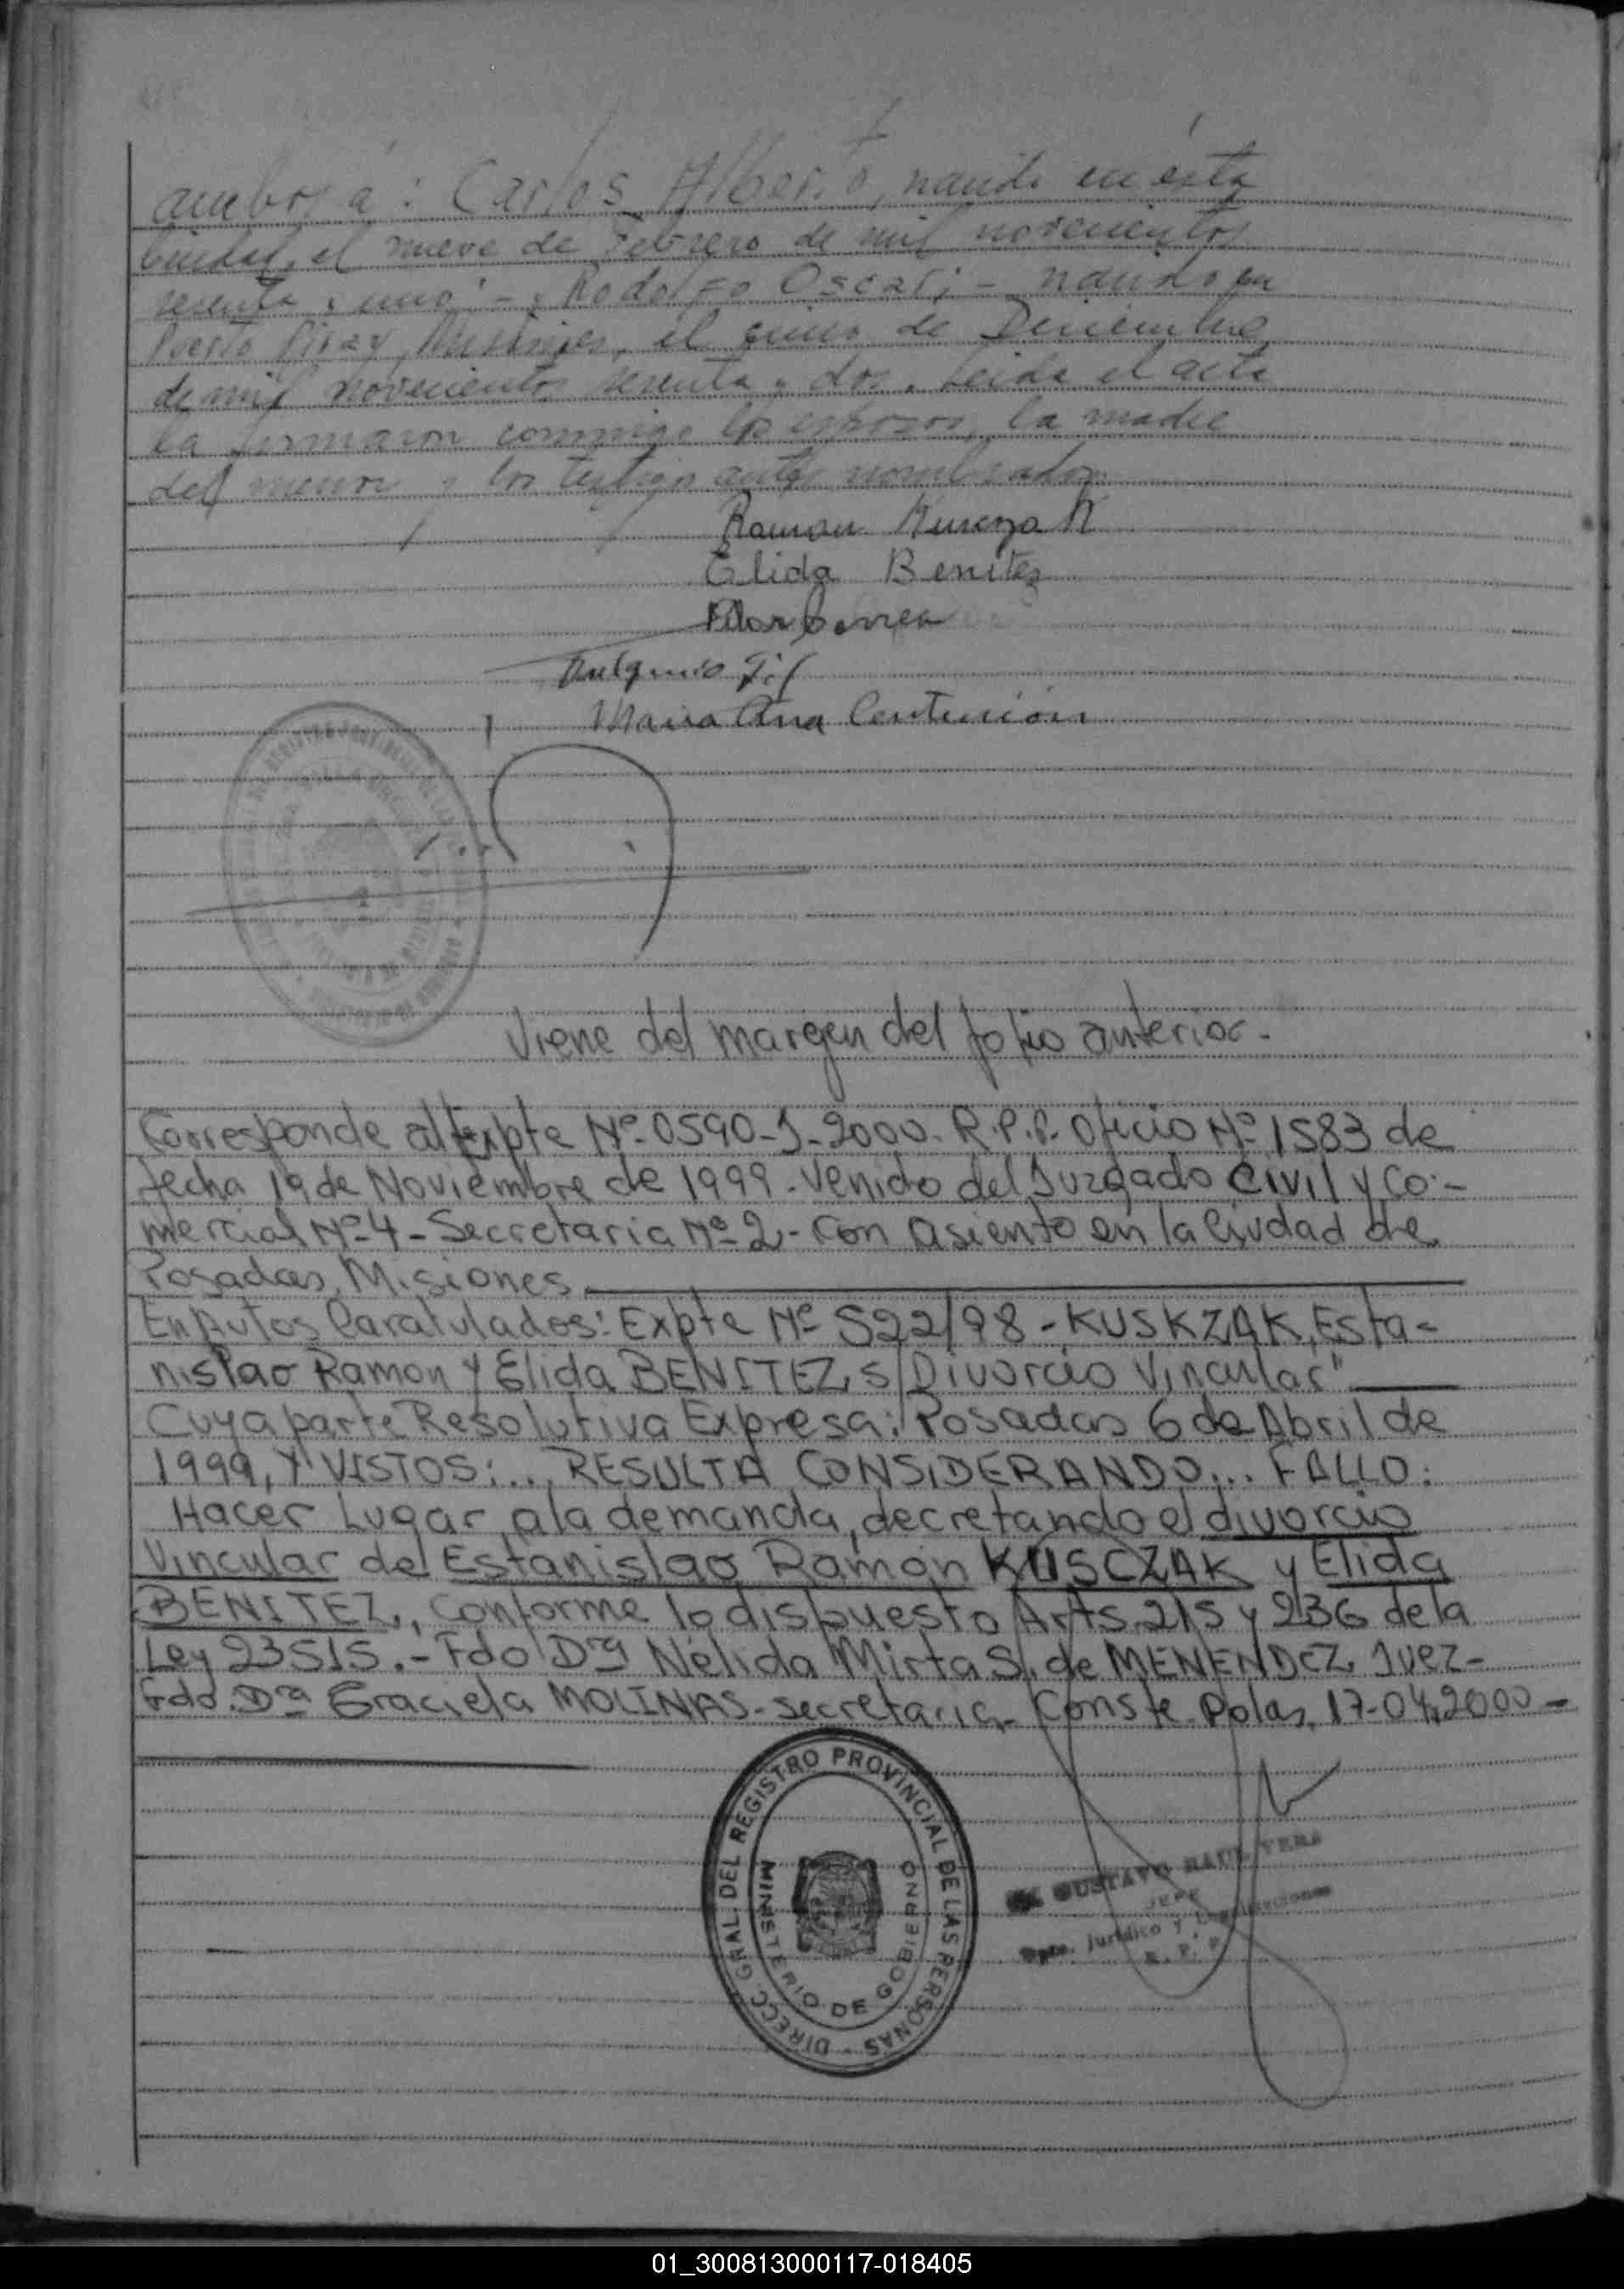 ambos a: Carlos Alberto, nacido en ésta
Ciudad, el nueve de Febrero de mil novecientos
sesenta y uno - y Rodolfo Oscar; - nacido en
Puerto Piray Misiones, el cinco de Diciembre
de mil novecientos sesenta y dos. Leida el acta
la firmaron conmigo los esposos, la madre
del menor y los testigos antes nombrados
Ramon Kuscza K
Elida Benitez
Pilar Correa
Gil
Maria Ana Centurión
Viene del margen del folio anterior.
Corresponde al Expte Nº 0590-J-2000. R.P.P. Oficio Nº 1583 de
fecha 19 de Noviembre de 1999. Venido del Juzgado Civil y Co.-
mercial Nº 4 - Secretaria Nº 2 - Con asiento en la Ciudad de
Posadas, Misiones
En Autos Caratulados: Expte Nº 522/98 - KUSKZAK, Esta-
nislao Ramon y Elida BENITEZ, s/Divorcio Vincular"
Cuya parte Resolutiva Expresa: Posadas 6 de Abril de
1999, Y VISTOS:... RESULTA CONSIDERANDO... FALLO:
Hacer Lugar a la demanda, decretando el divorcio
Vincular de Estanislao Ramón KUSCZAK y Elida
BENITEZ, Conforme lo dispuesto Arts. 215 y 236 de la
Ley 23515.- Fdo Dra Nélida Mirta S. de MENENDEZ Juez-
Fdo. Dra Graciela MOLINAS - Secretaria - Conste Pdas, 17-04-2000 -
DIRECC. GRAL. DEL REGISTRO PROVINCIAL DE LAS PERSONAS
MINISTERIO DE GOBIERNO
GUSTAVO RAUL VERA
JEFE
Dpto. Jurídico y Legalizaciones
R. P. P.
01_300813000117-018405